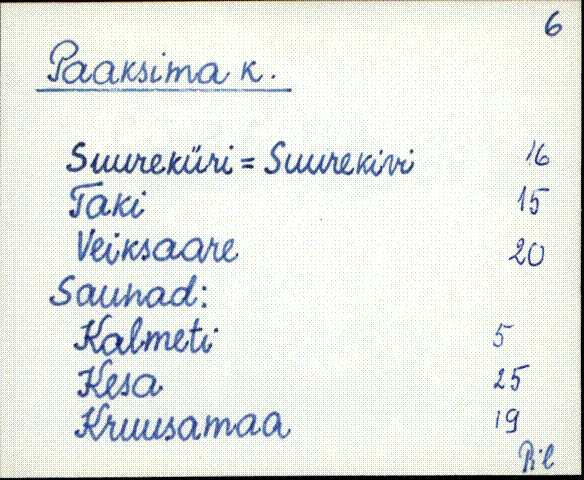 6
Paaksima k.
Suureküri = Suurekivi 16
Taki 15
Veiksaare 20
Saunad:
Kalmeti 5
Kesa 25
Kruusamaa 19